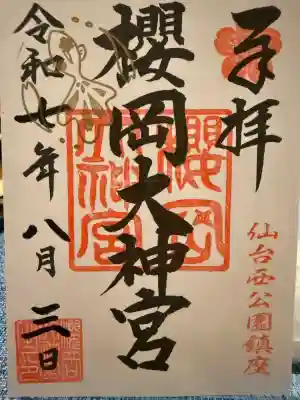 奉拝
仙台西公園鎮座
櫻岡大神宮
櫻岡
大神宮
令和七年八月三日